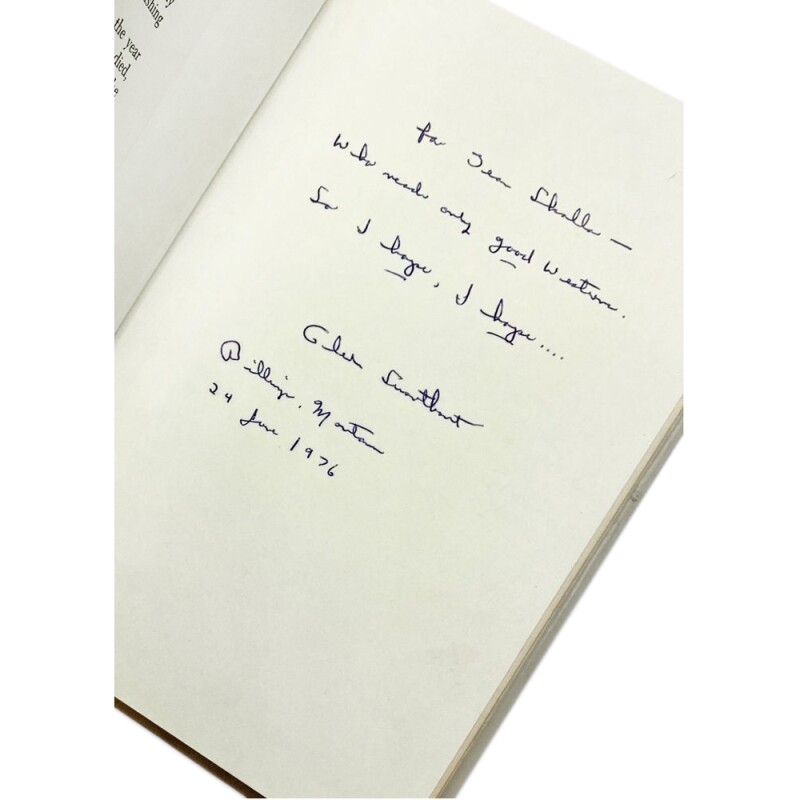 shing
the year
died,
For Jean Skalla —
Who reads only good Westerns.
So I hope, I hope....
Glen Swarthout
Billings, Montana
24 June 1976